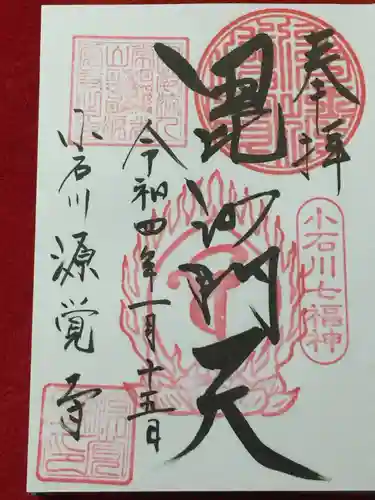 奉拝
小石川七福神
毘沙門天
令和四年一月十五日
小石川源覚寺